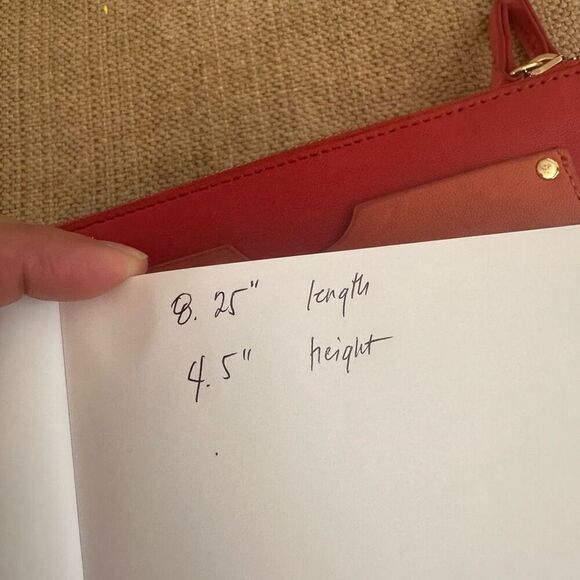 8.25" length
4.5" height